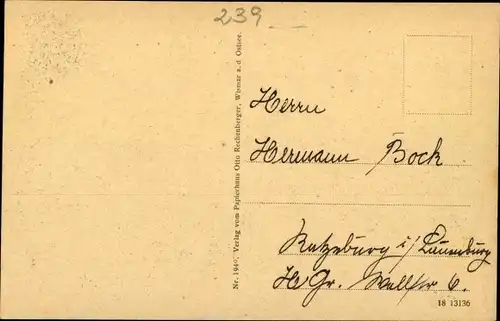 239
Nr. 194 Verlag vom Papierhaus Otto Rechenberger, Wismar a. d. Ostsee.
Herrn
Hermann Bock
Ratzeburg i/ Lauenburg
Gr. Wallstr 6.
18 13136